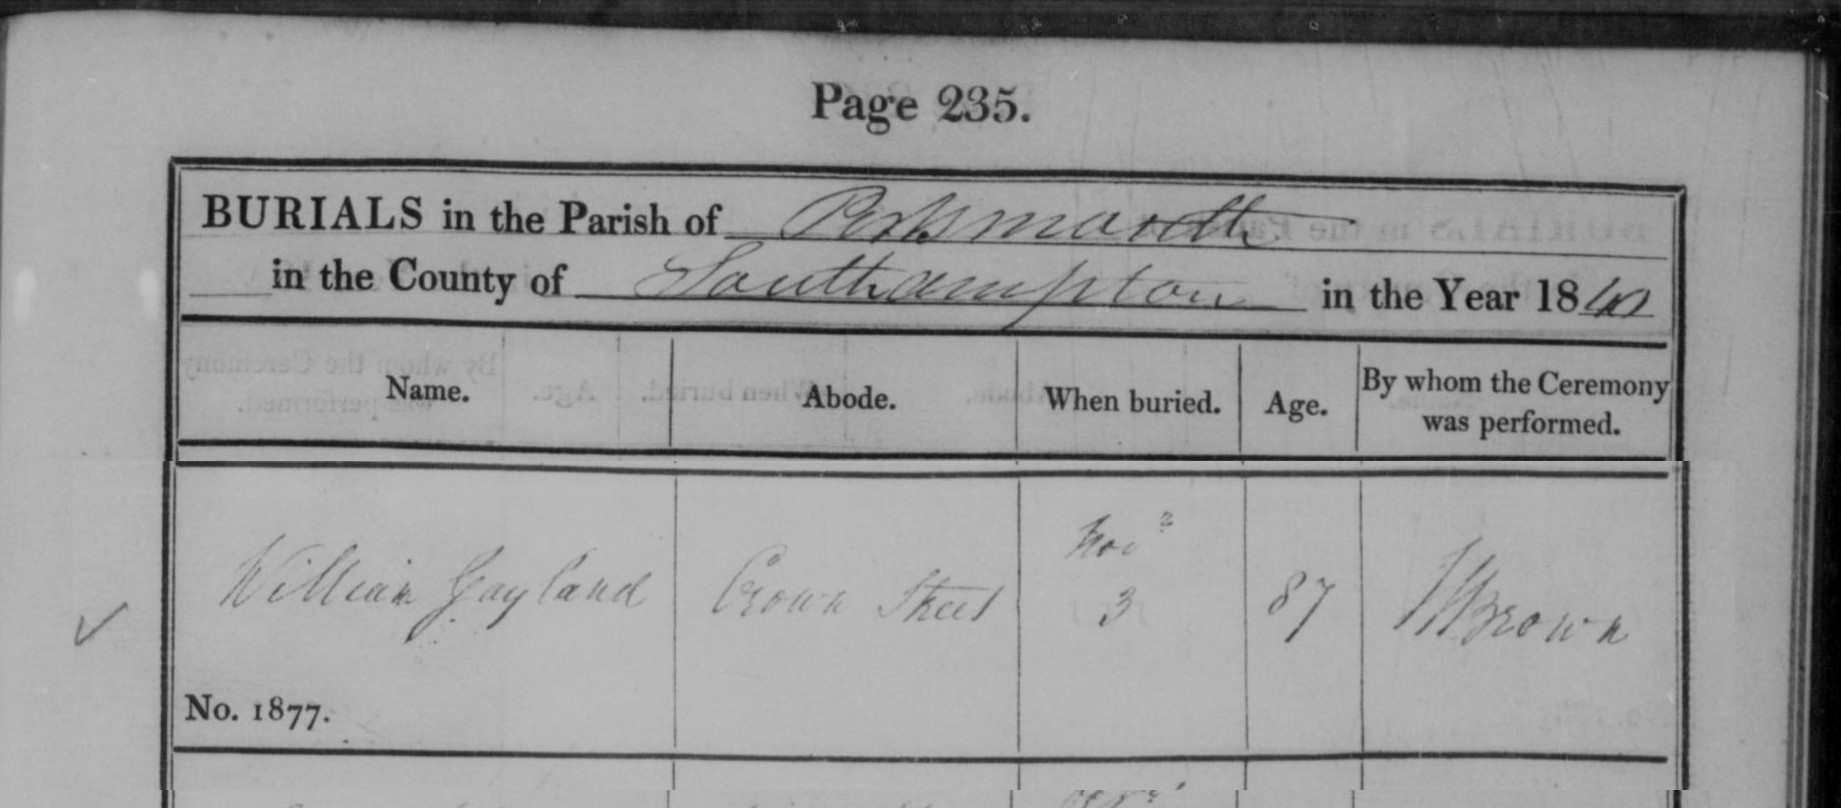 Page 235.
BURIALS in the Parish of Portsmouth
in the County of Southampton in the Year 1840
Name. Abode. When buried. Age. By whom the Ceremony was performed.
William Gayland Crown Street Novr 3 87 Brown
No. 1877.